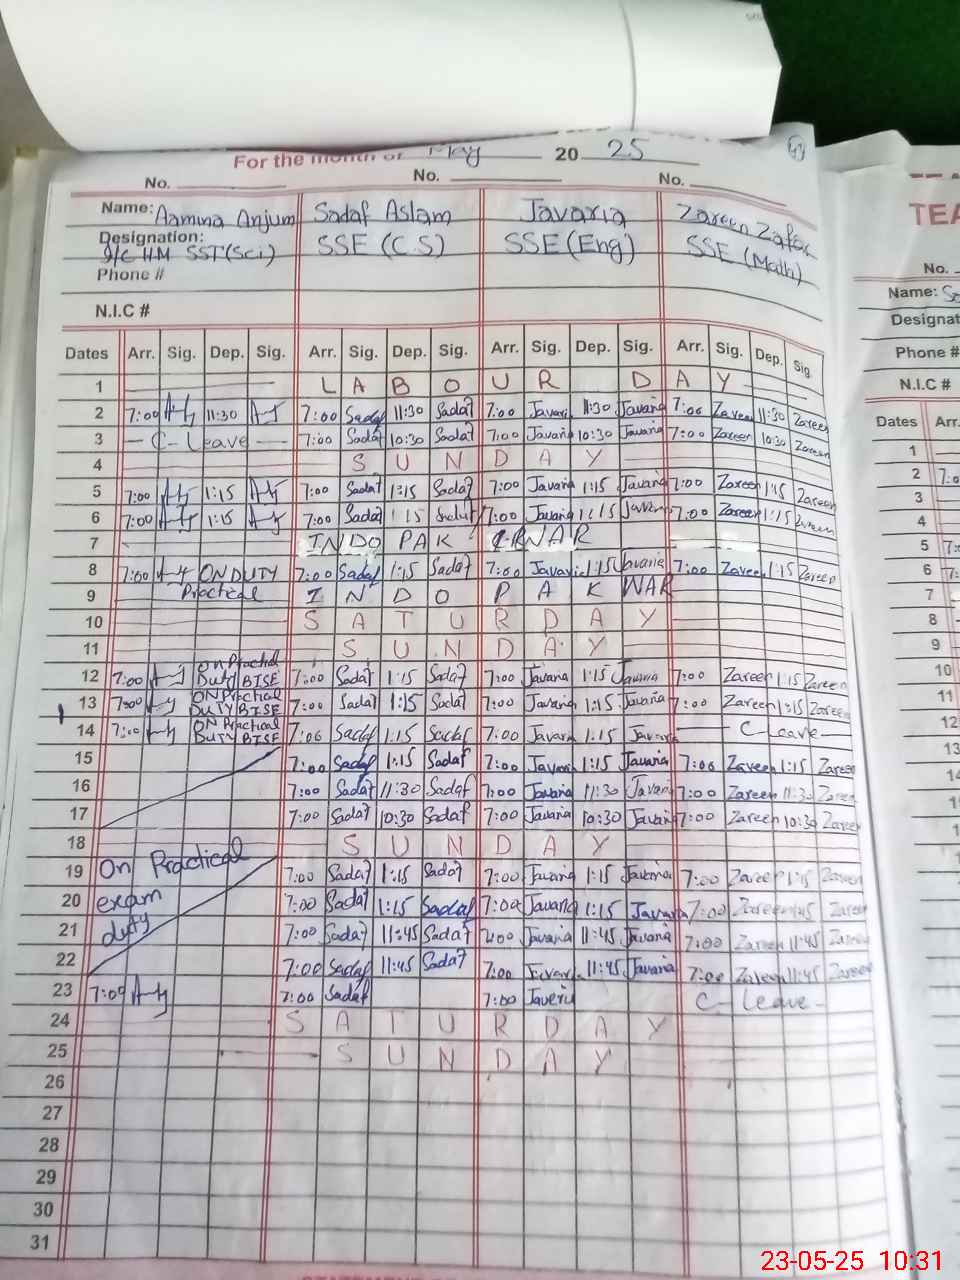 For the month of May 20 25
No. No. No.
Name: Aamina Anjum Sadaf Aslam Javaria Zareen Zafar
Designation: I/C HM SST(Sci) SSE (C.S) SSE (Eng) SSE (Math)
Phone #
N.I.C #
Dates Arr. Sig. Dep. Sig. Arr. Sig. Dep. Sig. Arr. Sig. Dep. Sig. Arr. Sig. Dep. Sig.
1 L A B O U R D A Y
2 7:00 11:30 7:00 Sadaf 11:30 Sadaf 7:00 Javaria 11:30 Javaria 7:00 Zareen 11:30 Zareen
3 - C-Leave - 7:00 Sadaf 10:30 Sadaf 7:00 Javaria 10:30 Javaria 7:00 Zareen 10:30 Zareen
4 S U N D A Y
5 7:00 1:15 7:00 Sadaf 1:15 Sadaf 7:00 Javaria 1:15 Javaria 7:00 Zareen 1:15 Zareen
6 7:00 1:15 7:00 Sadaf 1:15 Sadaf 7:00 Javaria 1:15 Javaria 7:00 Zareen 1:15 Zareen
7 INDO PAK WAR
8 7:00 ON DUTY 7:00 Sadaf 1:15 Sadaf 7:00 Javaria 1:15 Javaria 7:00 Zareen 1:15 Zareen
9 Practical I N D O P A K WAR
10 S A T U R D A Y
11 S U N D A Y
12 7:00 On Practical Duty BISE 7:00 Sadaf 1:15 Sadaf 7:00 Javaria 1:15 Javaria 7:00 Zareen 1:15 Zareen
13 7:00 ON Practical DUTY BISE 7:00 Sadaf 1:15 Sadaf 7:00 Javaria 1:15 Javaria 7:00 Zareen 1:15 Zareen
14 7:00 ON Practical DUTY BISE 7:00 Sadaf 1:15 Sadaf 7:00 Javaria 1:15 Javaria C-Leave-
15 7:00 Sadaf 1:15 Sadaf 7:00 Javaria 1:15 Javaria 7:00 Zareen 1:15 Zareen
16 7:00 Sadaf 11:30 Sadaf 7:00 Javaria 11:30 Javaria 7:00 Zareen 11:30 Zareen
17 7:00 Sadaf 10:30 Sadaf 7:00 Javaria 10:30 Javaria 7:00 Zareen 10:30 Zareen
18 S U N D A Y
19 On Practical 7:00 Sadaf 1:15 Sadaf 7:00 Javaria 1:15 Javaria 7:00 Zareen 1:15 Zareen
20 exam 7:00 Sadaf 1:15 Sadaf 7:00 Javaria 1:15 Javaria 7:00 Zareen Zareen
21 duty 7:00 Sadaf 11:45 Sadaf 7:00 Javaria 11:45 Javaria 7:00 Zareen 11:45 Zareen
22 7:00 Sadaf 11:45 Sadaf 7:00 Javaria 11:45 Javaria 7:00 Zareen 11:45 Zareen
23 7:00 7:00 Sadaf 7:00 Javeria C-Leave-
24 S A T U R D A Y
25 S U N D A Y
26
27
28
29
30
31
TEA
No.
Name:
Designat
Phone #
N.I.C #
Dates Arr.
1
2
3
4
5
6
7
8
9
10
11
12
13
14
23-05-25 10:31